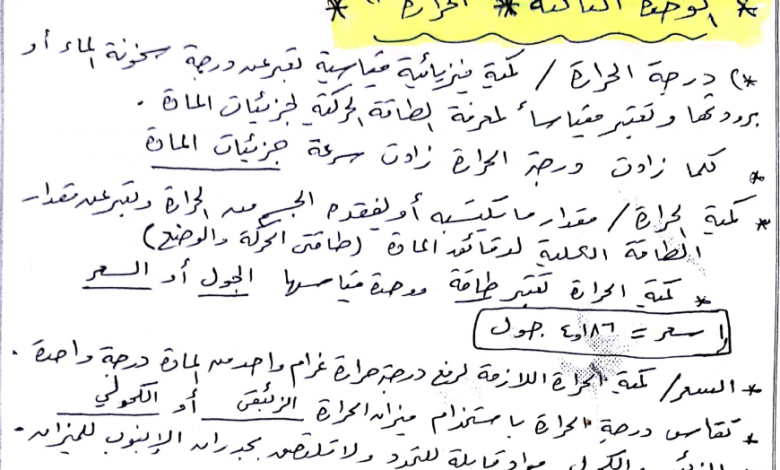 * الوحدة الثالثة * الحرارة *
*) درجة الحرارة / كمية فيزيائية قياسية تعبر عن درجة سخونة الماء أو
برودتها وتعتبر مقياساً لمعرفة الطاقة الحركية لجزيئات المادة .
* كلما زادت درجة الحرارة زادت سرعة جزيئات المادة
* كمية الحرارة / مقدار ما يكتسبه أو يفقده الجسم من الحرارة وتعبر عن مقدار
الطاقة الكلية لدقائق المادة (طاقتي الحركة والوضع)
* كمية الحرارة تعتبر طاقة ووحدة قياسها الجول أو السعر
١ سعر = ٤٫١٨٦ جول
* السعر / كمية الحرارة اللازمة لرفع درجة حرارة غرام واحد من المادة درجة واحدة .
* تقاس درجة الحرارة باستخدام ميزان الحرارة الزئبقي أو الكحولي
الزئبق والكحول مواد قابلة للتمدد ولا تلتصق بجدران الانبوب للميزان .